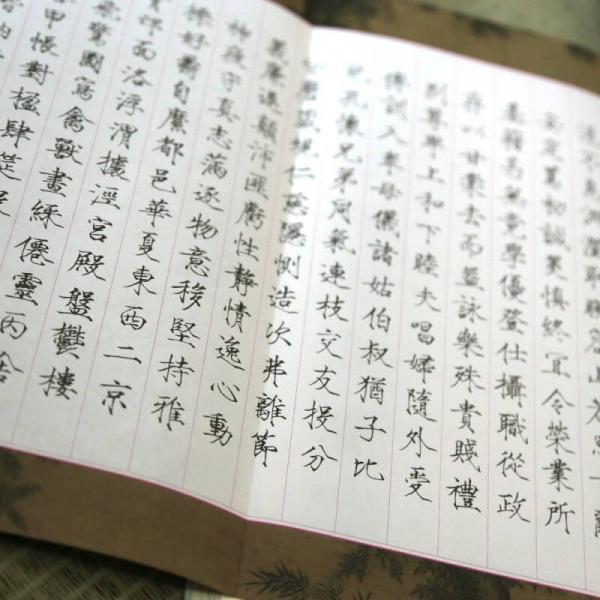 流不息淵澄取映容止若思言辭
安定篤初誠美慎終宜令榮業所
基籍甚無竟學優登仕攝職從政
存以甘棠去而益詠樂殊貴賤禮
別尊卑上和下睦夫唱婦隨外受
傅訓入奉母儀諸姑伯叔猶子比
兒孔懷兄弟同氣連枝交友投分
磨箴規仁慈隱惻造次弗離節
義廉退顛沛匪虧性靜情逸心動
神疲守真志滿逐物意移堅持雅
操好爵自縻都邑華夏東西二京
邙面洛浮渭據涇宮殿盤鬱樓
飛驚圖寫禽獸畫綵僊靈丙舍
甲帳對楹肆筵設
納